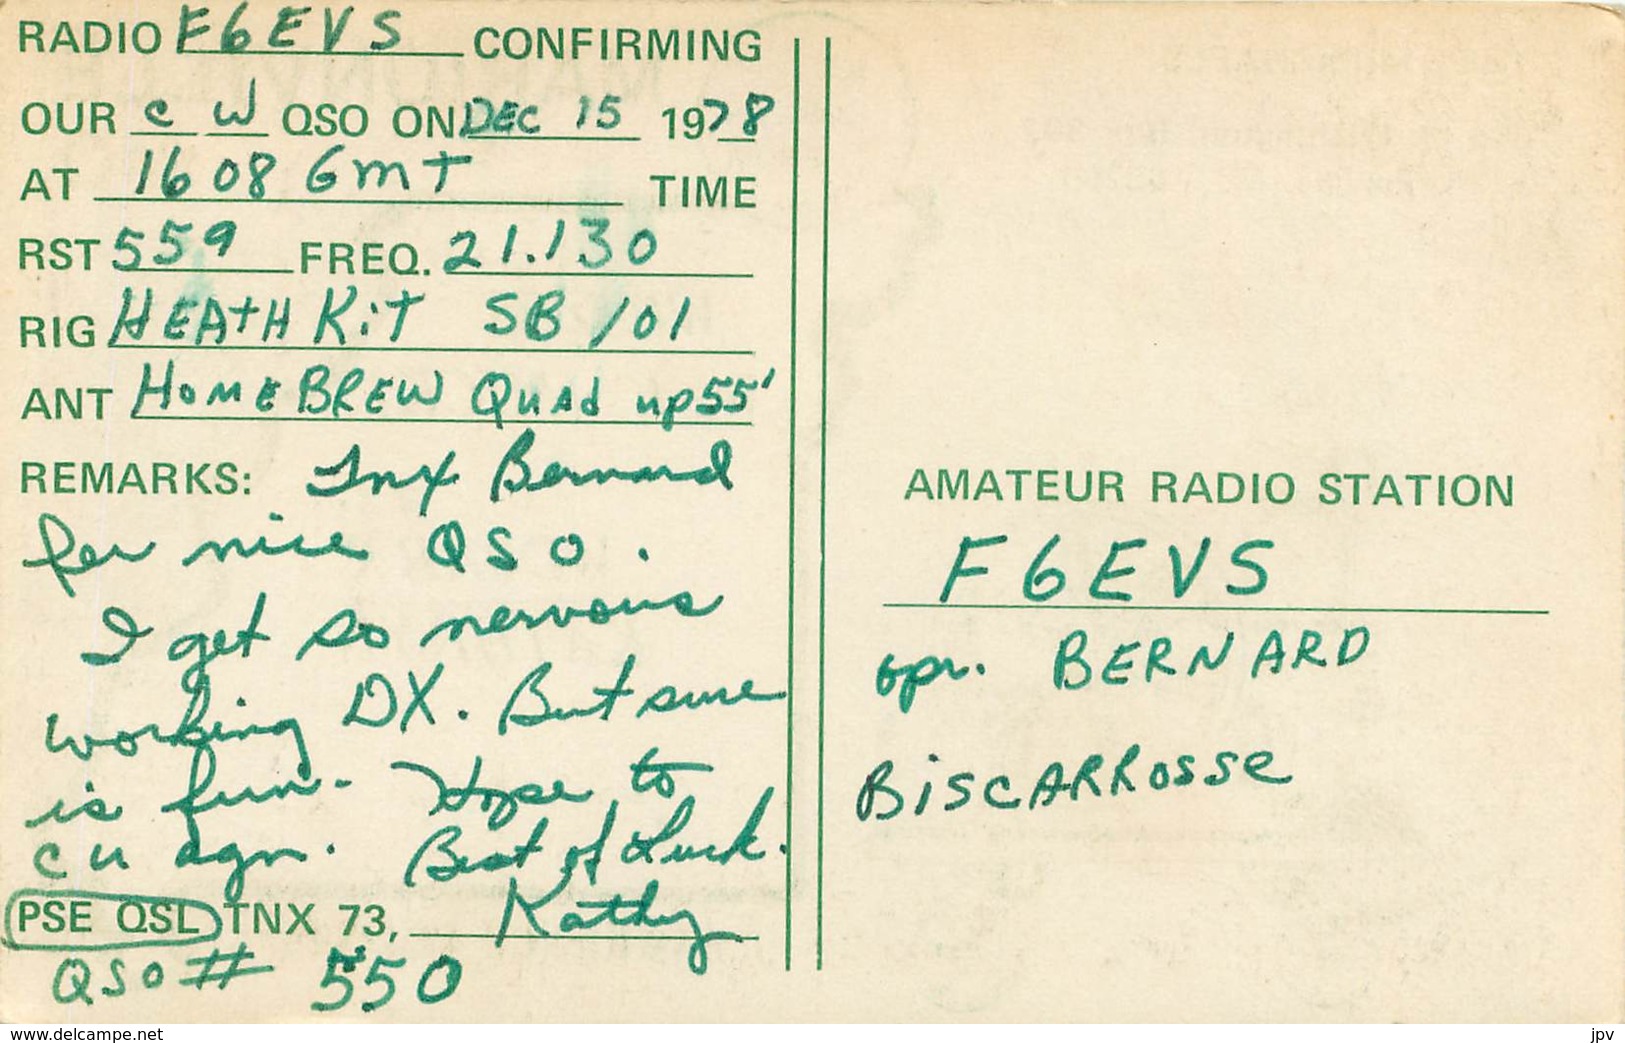 RADIO F6EVS CONFIRMING
OUR C W QSO ON DEC 15 1978
AT 1608 GMT TIME
RST 559 FREQ. 21.130
RIG HEATH KiT SB 101
ANT HOMEBREW Quad up 55'
REMARKS: Tnx Bernard
fer nice QSO.
I get so nervous
working DX. But sure
is fun. Hope to
cu agn. Best of Luck.
PSE QSL TNX 73, Kathy
QSO # 550
AMATEUR RADIO STATION
F6EVS
opr. BERNARD
BiSCARROSSe
www.delcampe.net
jpv